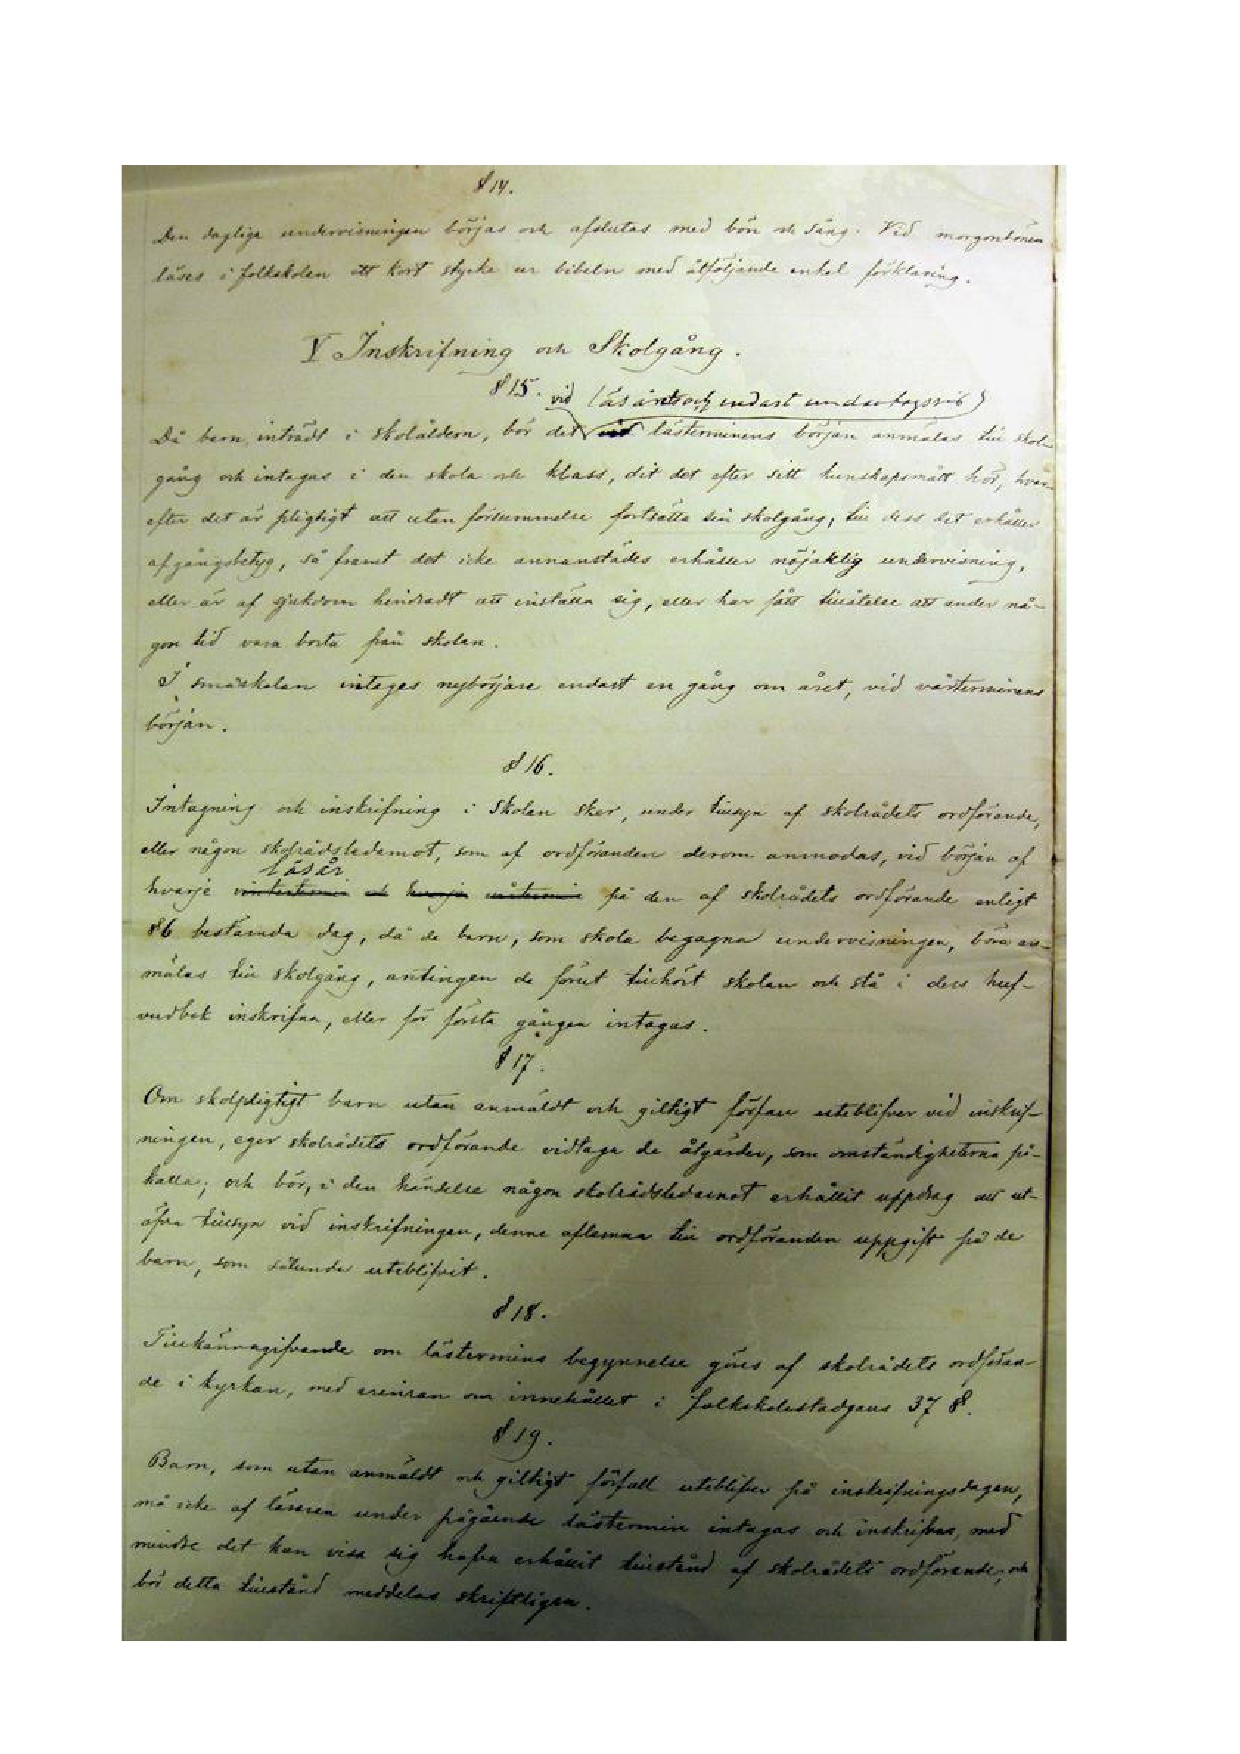 § 14.
Den dagliga undervisningen börjas och afslutas med bön och sång. Vid morgonbönen
läses i folkskolen ett kort stycke ur bibeln med åtföljande enkel förklaring.
V Inskrifning och Skolgång.
§ 15.
vid (läsårets och endast undantagsvis)
Då barn inträdt i skolåldern, bör det vid lästerminens början anmälas till skol-
gång och intagas i den skola och klass, dit det efter sitt kunskapsmått hör, hvar-
efter det är pligtigt att utan försummelse fortsätta sin skolgång, till dess det erhåller
afgångsbetyg, så framt det icke annanstädes erhåller nöjaktig undervisning,
eller är af sjukdom hindradt att inställa sig, eller har fått tillåtelse att under nå-
gon tid vara borta från skolan.
I småskolan intages nybörjare endast en gång om året, vid vårterminens
början.
§ 16.
Intagning och inskrifning i Skolan sker, under tillsyn af skolrådets ordförande,
eller någon skolrådsledamot, som af ordföranden derom anmodas, vid början af
läsår
hvarje vintertermin och hvarje på den af skolrådets ordförande enligt
§6 bestämda dag, då de barn, som skola begagna undervisningen, böra an-
mälas till skolgång, antingen de förut tillhört skolan och stå i dess huf-
vudbok inskrifna, eller för första gången intagas.
§ 17.
Om skolpligtigt barn utan anmäldt och giltigt förfall uteblifver vid inskrif-
ningen, eger skolrådets ordförande vidtaga de åtgärder, som omständigheterna på-
kalla; och bör, i den händelse någon skolrådsledamot erhållit uppdrag att ut-
öfva tillsyn vid inskrifningen, denne aflemna till ordföranden uppgift på de
barn, som sålunda uteblifvit.
§ 18.
Tillkännagifvande om lästermins begynnelse göres af skolrådets ordföran-
de i kyrkan, med erinran om innehållet i folkskolestadgans 37 §.
§ 19.
Barn, som utan anmäldt och giltigt förfall uteblifver på inskrifningsdagen,
må icke af läraren under pågående lästermin intagas och inskrifvas, med
mindre det kan visa sig hafva erhållit tillstånd af skolrådets ordförande, och
bör detta tillstånd meddelas skriftligen.